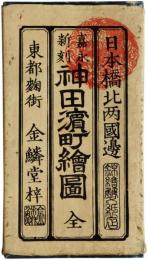 日本橋北両國邊
嘉永新刻
神田濱町繪圖 全
東都麹街 金鱗堂梓